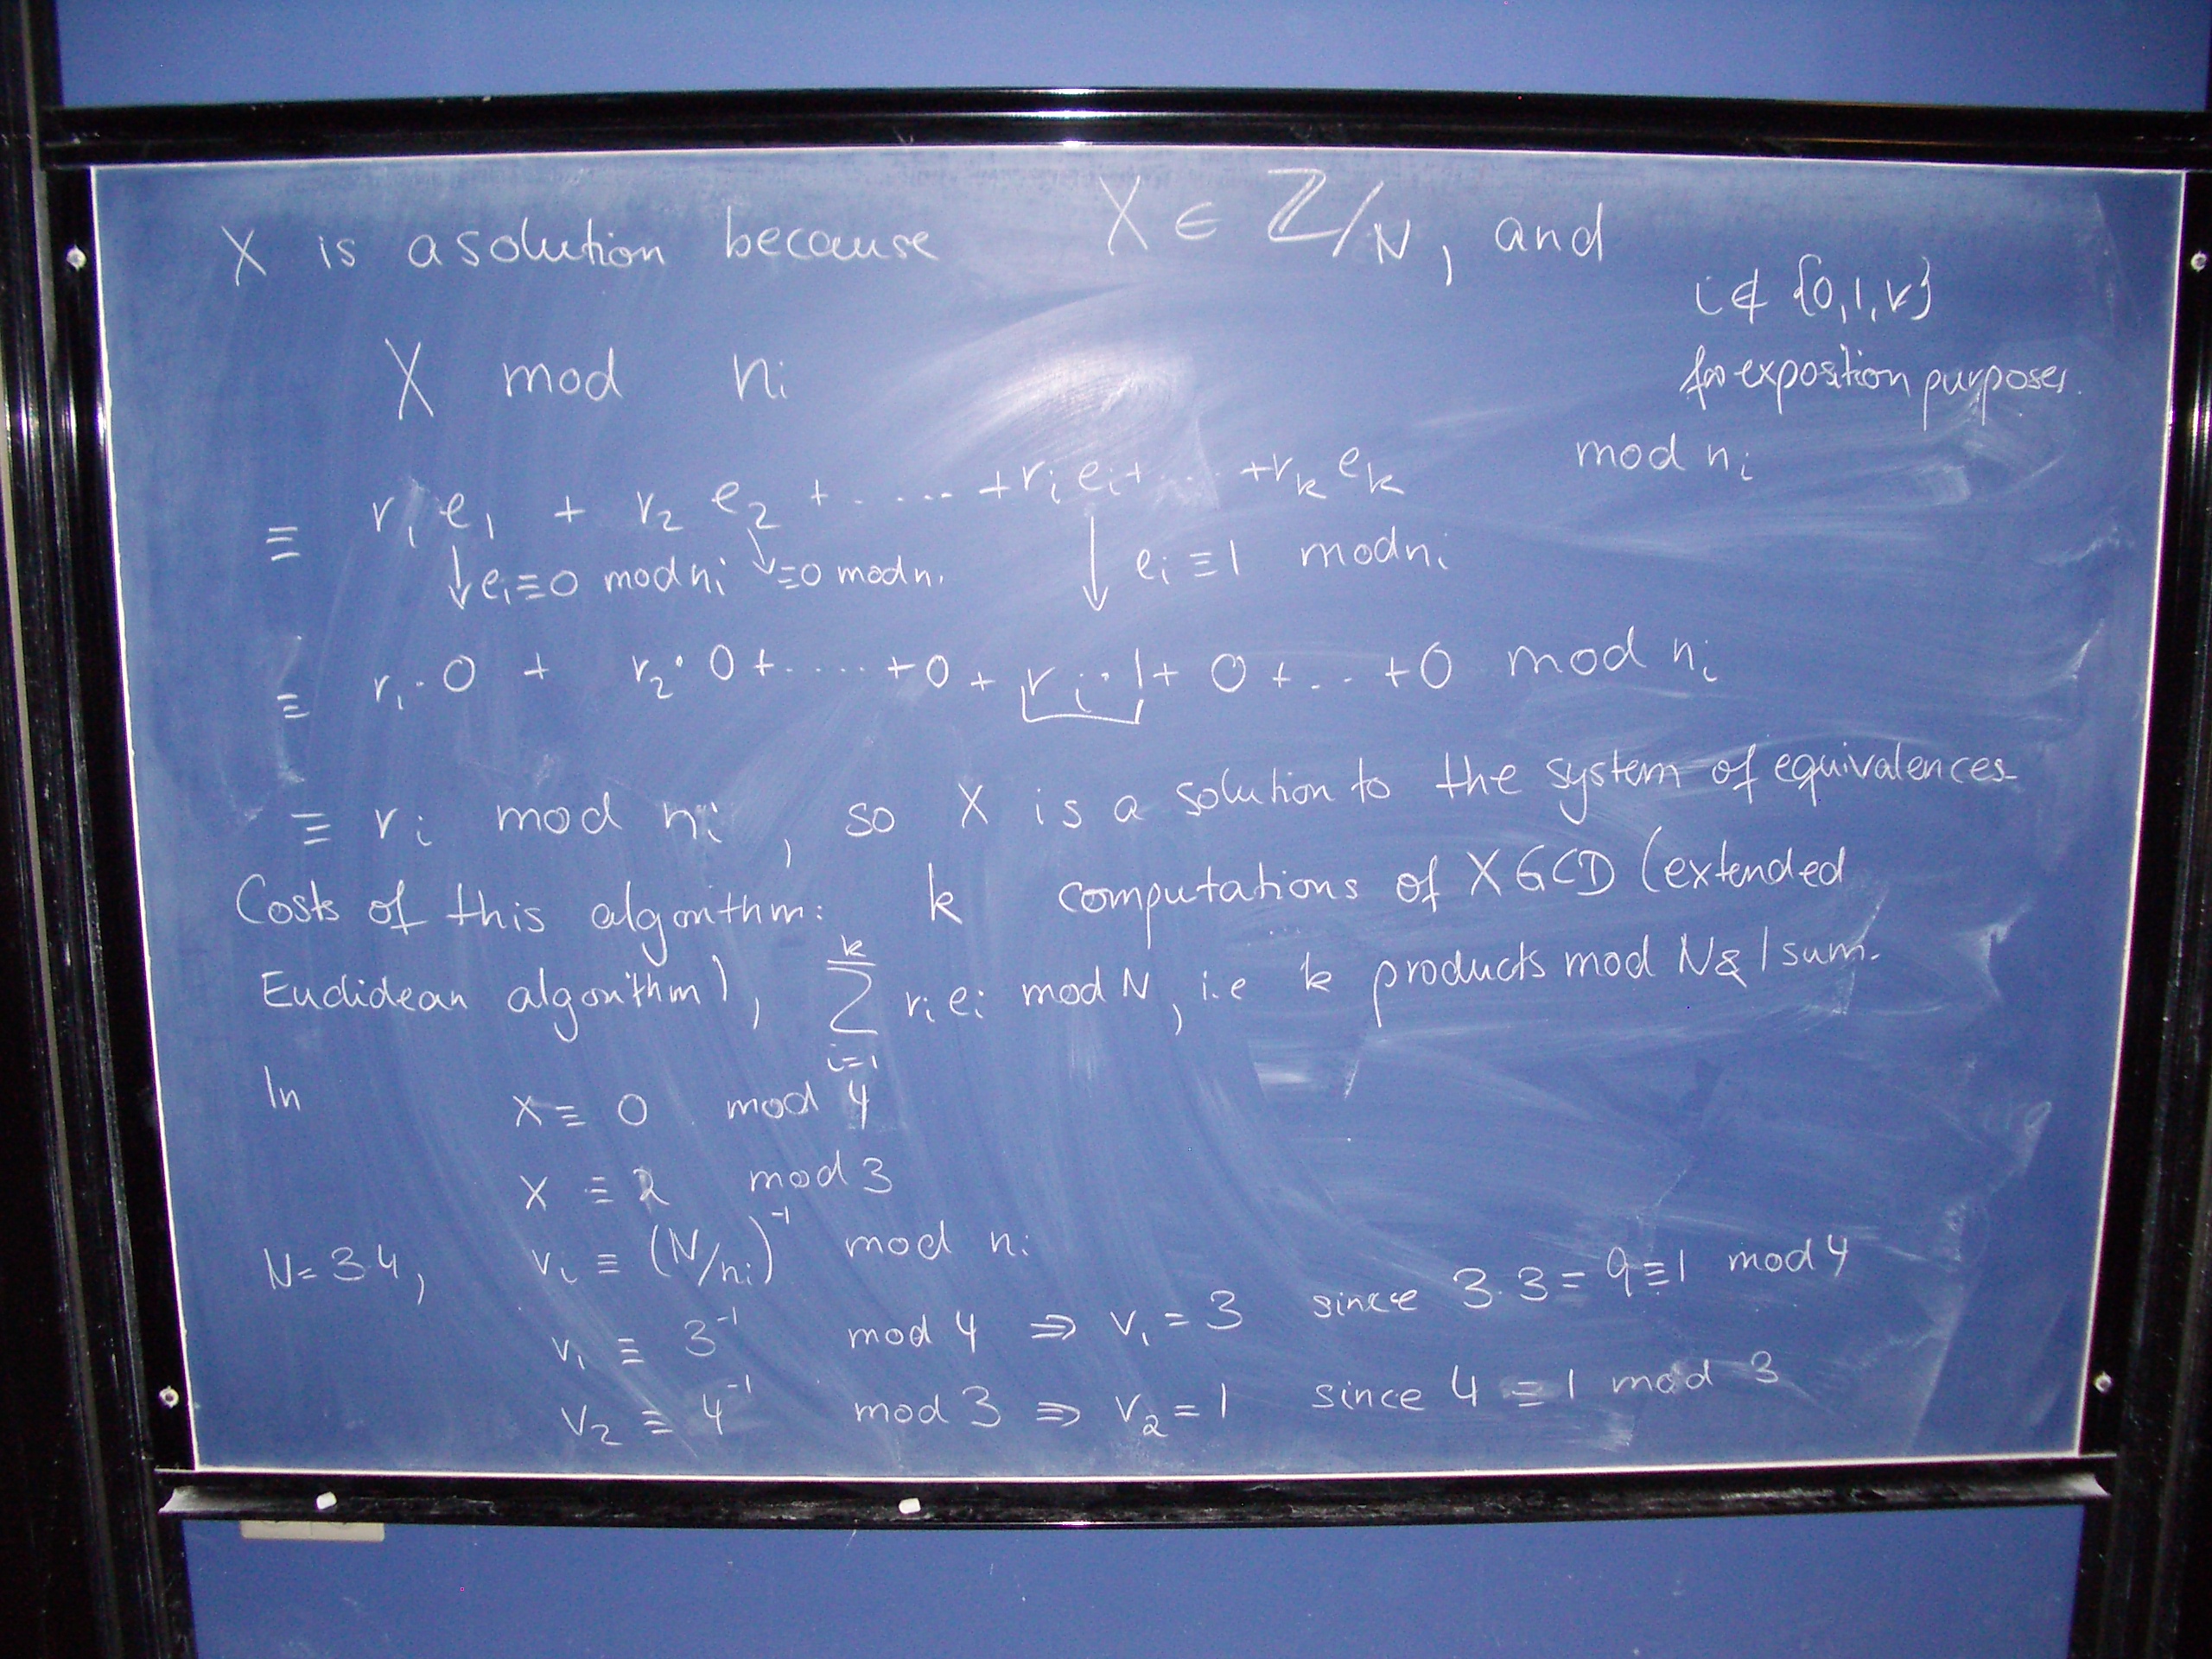 X is a solution because X ∈ ℤ/N, and
i ∉ {0,1,k}
for exposition purposes.
X mod ni
≡ r1 e1 + r2 e2 + ...... + ri ei + ... + rk ek mod ni
↓ e1 ≡ 0 mod ni ↘ ≡0 mod ni ↓ ei ≡ 1 mod ni
≡ r1·0 + r2·0 + ..... + 0 + ri·1 + 0 + ... + 0 mod ni
≡ ri mod ni, so X is a solution to the system of equivalences
Costs of this algorithm: k computations of XGCD (extended
Euclidean algorithm), ∑_{i=1}^{k} ri ei mod N, i.e k products mod N & 1 sum.
In X ≡ 0 mod 4
X ≡ 2 mod 3
N=3·4, vi ≡ (N/ni)⁻¹ mod ni
v1 ≡ 3⁻¹ mod 4 ⇒ v1 = 3 since 3·3 = 9 ≡ 1 mod 4
v2 ≡ 4⁻¹ mod 3 ⇒ v2 = 1 since 4 ≡ 1 mod 3